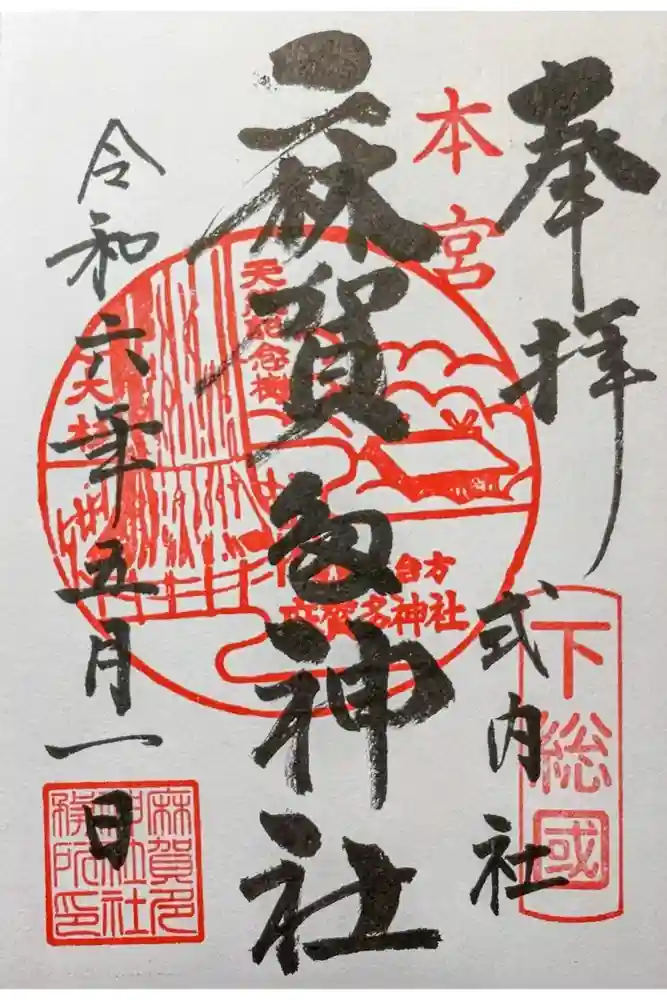 奉拝
本宮
下総國
式内社
麻賀多神社
天然記念樹
大杉
台方
麻賀多神社
令和六年五月一日
麻賀多
神社社
務所印